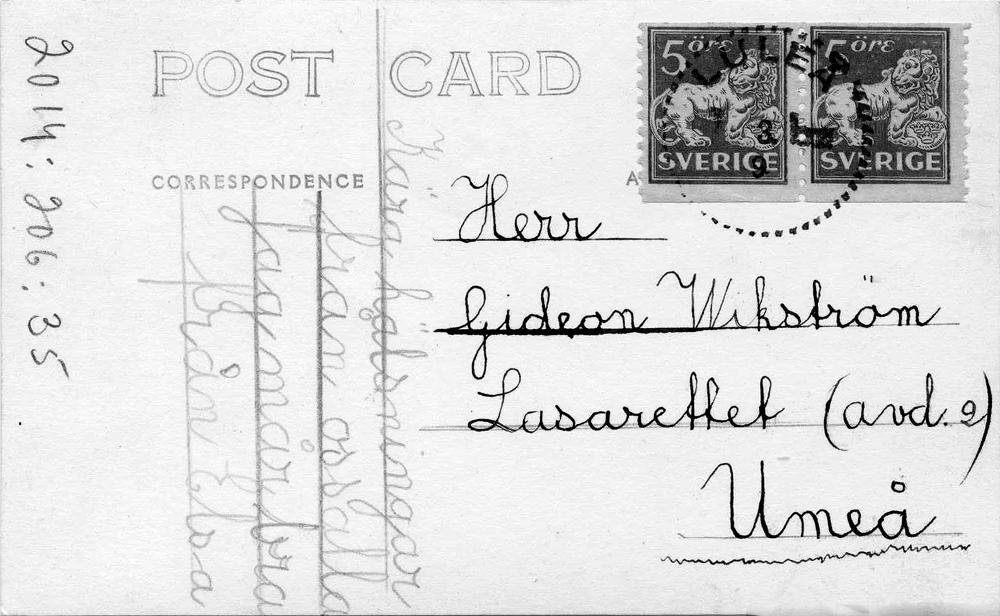 2014:206:35
POST CARD
CORRESPONDENCE
A
5 öre
SVERIGE
5 öre
SVERIGE
LULEÅ
3
9
Kära hälsningar
från oss alla
jag mår bra
Från Elsa
Herr
Gideon Wikström
Lasarettet (avd. 2)
Umeå